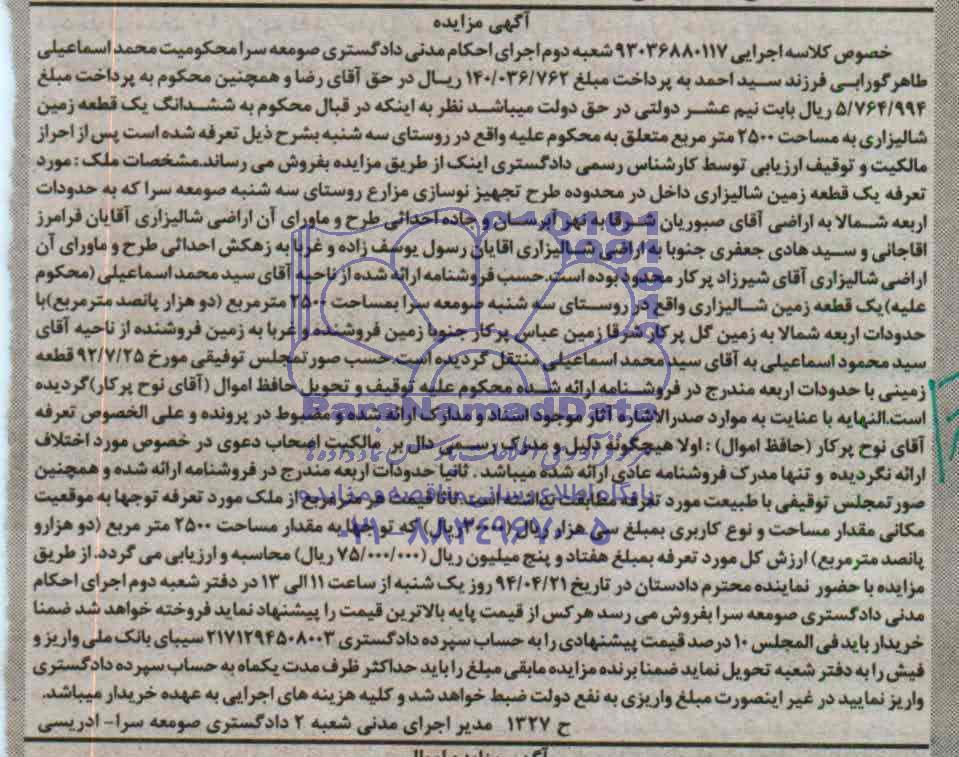 آگهی مزایده
خصوص کلاسه اجرایی ۹۳۰۳۶۸۸۰۱۱۷ شعبه دوم اجرای احکام مدنی دادگستری صومعه سرا محکومیت محمد اسماعیلی
طاهر گورابی فرزند سید احمد به پرداخت مبلغ ۱۴۰/۰۳۶/۷۶۲ ریال در حق آقای رضا و همچنین محکوم به پرداخت مبلغ
۵/۷۶۴/۹۹۴ ریال بابت نیم عشر دولتی در حق دولت میباشد نظر به اینکه در قبال محکوم به ششدانگ یک قطعه زمین
شالیزاری به مساحت ۲۵۰۰ متر مربع متعلق به محکوم علیه واقع در روستای سه شنبه بشرح ذیل تعرفه شده است پس از احراز
مالکیت و توقیف ارزیابی توسط کارشناس رسمی دادگستری اینک از طریق مزایده بفروش می رساند.مشخصات ملک : مورد
تعرفه یک قطعه زمین شالیزاری داخل در محدوده طرح تجهیز نوسازی مزارع روستای سه شنبه صومعه سرا که به حدودات
اربعه شمالا به اراضی آقای صبوریان شرقا به نهر آبرسان و جاده احداثی طرح و ماورای آن اراضی شالیزاری آقایان فرامرز
آقاجانی و سید هادی جعفری جنوبا به اراضی شالیزاری اقایان رسول یوسف زاده و غربا به زهکش احداثی طرح و ماورای آن
اراضی شالیزاری آقای شیرزاد پرکار محدود بوده است.حسب فروشنامه ارائه شده از ناحیه آقای سید محمد اسماعیلی (محکوم
علیه) یک قطعه زمین شالیزاری واقع در روستای سه شنبه صومعه سرا بمساحت ۲۵۰۰ مترمربع (دو هزار پانصد مترمربع) با
حدودات اربعه شمالا به زمین گل پرکار شرقا زمین عباس پرکار جنوبا زمین فروشنده و غربا به زمین فروشنده از ناحیه آقای
سید محمود اسماعیلی به آقای سید محمد اسماعیلی منتقل گردیده است.حسب صورتمجلس توقیفی مورخ ۹۲/۷/۲۵ قطعه
زمینی با حدودات اربعه مندرج در فروشنامه ارائه شده محکوم علیه توقیف و تحویل حافظ اموال (آقای نوح پرکار) گردیده
است.النهایه با عنایت به موارد صدرالاشاره آثار موجود اسناد و مدارک ارائه شده و مضبوط در پرونده و علی الخصوص تعرفه
آقای نوح پرکار (حافظ اموال) : اولا هیچگونه دلیل و مدرک رسمی دال بر مالکیت اصحاب دعوی در خصوص مورد اختلاف
ارائه نگردیده و تنها مدرک فروشنامه عادی ارائه شده میباشد . ثانیا حدودات اربعه مندرج در فروشنامه ارائه شده و همچنین
صورتمجلس توقیفی با طبیعت مورد تعرفه مطابقت نداشته است ثالثا قیمت هر مترمربع از ملک مورد تعرفه توجها به موقعیت
مکانی مقدار مساحت و نوع کاربری بمبلغ سی هزار ریال که توجها به مقدار مساحت ۲۵۰۰ متر مربع (دو هزارو
پانصد مترمربع) ارزش کل مورد تعرفه بمبلغ هفتاد و پنج میلیون ریال (۷۵/۰۰۰/۰۰۰ ریال) محاسبه و ارزیابی می گردد.از طریق
مزایده با حضور نماینده محترم دادستان در تاریخ ۹۴/۰۴/۲۱ روز یک شنبه از ساعت ۱۱ الی ۱۳ در دفتر شعبه دوم اجرای احکام
مدنی دادگستری صومعه سرا بفروش می رسد هرکس از قیمت پایه بالاترین قیمت را پیشنهاد نماید فروخته خواهد شد ضمنا
خریدار باید فی المجلس ۱۰ درصد قیمت پیشنهادی را به حساب سپرده دادگستری ۲۱۷۱۲۹۴۵۰۸۰۰۳ سیبای بانک ملی واریز و
فیش را به دفتر شعبه تحویل نماید ضمنا برنده مزایده مابقی مبلغ را باید حداکثر ظرف مدت یکماه به حساب سپرده دادگستری
واریز نمایید در غیر اینصورت مبلغ واریزی به نفع دولت ضبط خواهد شد و کلیه هزینه های اجرایی به عهده خریدار میباشد.
ح ۱۳۲۷ مدیر اجرای مدنی شعبه ۲ دادگستری صومعه سرا- ادریسی
ParsNamadData
پایگاه اطلاع رسانی مناقصه و مزایده
۰۲۱-۸۸۳۴۹۶۷۰-۵